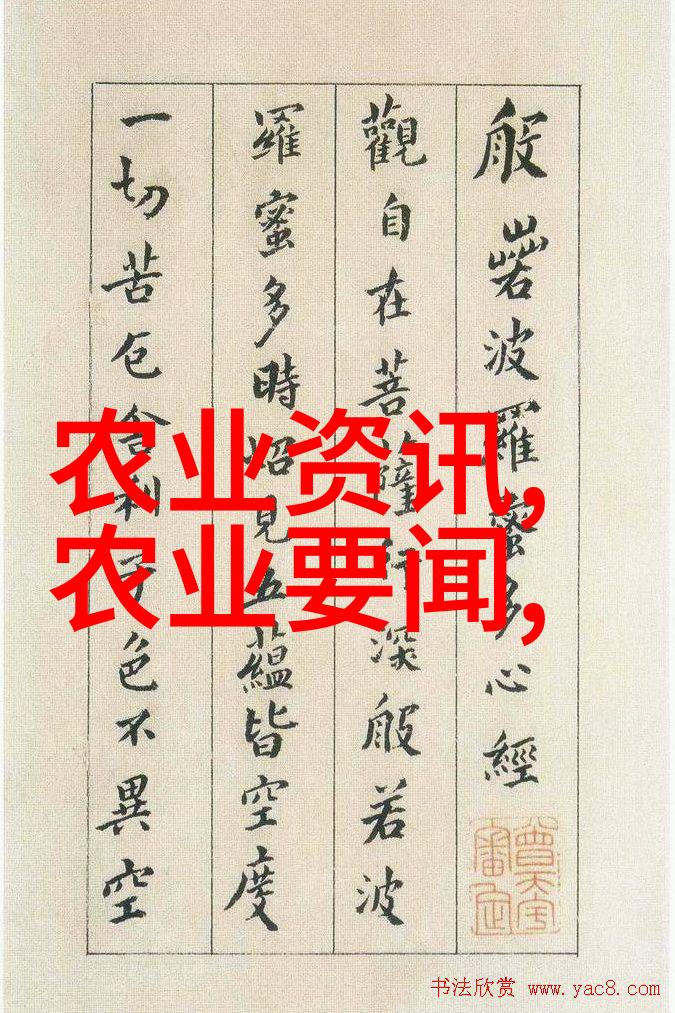 般若波羅蜜多心經
觀自在菩薩行深般若波
羅蜜多時炤見五蘊皆空度
一切苦厄舍利子色不異空
农业资讯,
农业要闻,
书法欣赏 www.yac8.com